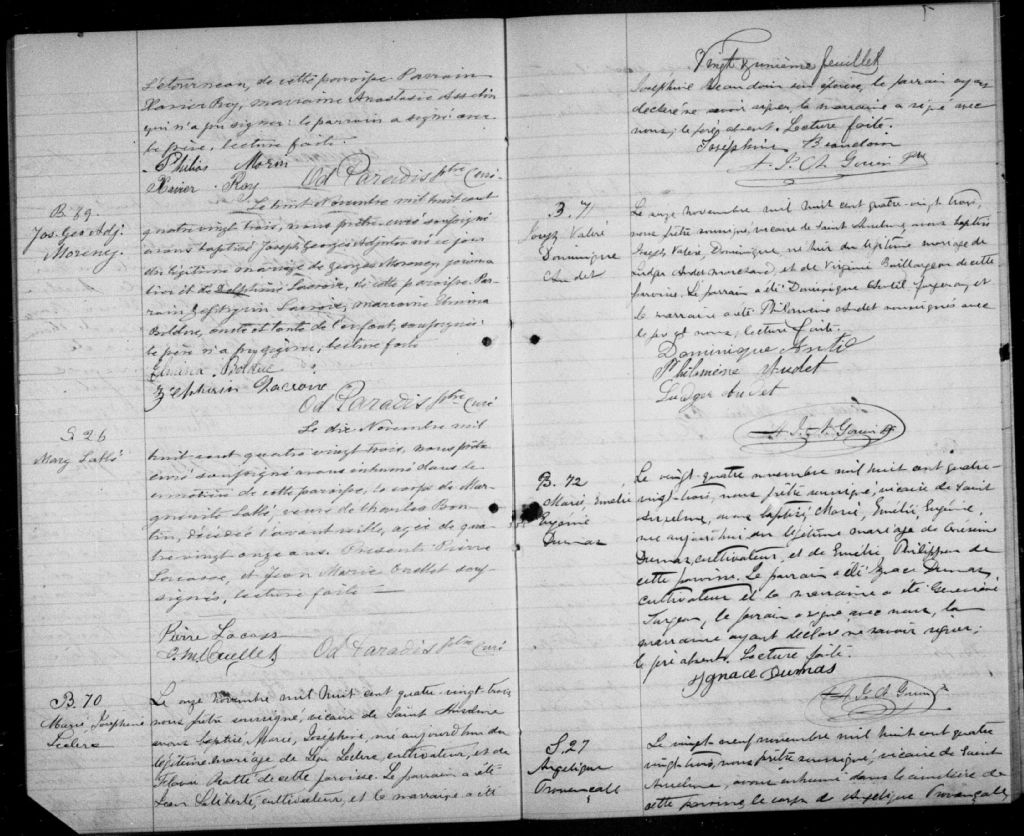 Létourneau, de cette paroisse Parrain
Xavier Roy, marraine Anastasie Asselin
qui n'a pu signer: le parrain a signé avec
le père, lecture faite.
Philias Morin
Xavier Roy Od Paradis ptre curé
B 69
Jos. Geo Adj.
Morency.
Le huit Novembre mil huit cent
quatre vingt trois, nous prêtre curé soussigné
avons baptisé Joseph Georges Adjutor né ce jour
du légitime mariage de Georges Morency
et de Delphine Lacroix, de cette paroisse Par-
rain Zéphyrin Lacroix, marraine Emma
Bolduc, oncle et tante de l'enfant, soussignés:
le père n'a pu signer, lecture faite
Bolduc
Zéphirin Lacroix
Od Paradis ptre curé
S 26
Marg Labbé
Le dix Novembre mil
huit cent quatre vingt trois, nous prêtre
curé soussigné avons inhumé dans le
cimetière de cette paroisse, le corps de Mar-
guerite Labbé, veuve de Charles
décédée l'avant veille, agée de qua-
tre vingt onze ans. Présents Pierre
Lacasse, et Jean Marie Ouellet sous-
signés, lecture faite —
Pierre Lacass
J. M. Ouellet Od Paradis ptre curé
B. 70
Marie, Joséphine
Leclerc
Le onze novembre mil huit cent quatre-vingt-trois
nous prêtre soussigné, vicaire de Saint Anselme
avons baptisé, Marie, Joséphine, née aujourd'hui du
légitime mariage de Léon Leclerc, cultivateur, et de
de cette paroisse. Le parrain a été
Léon Laliberté, cultivateur, et la marraine a été
Vingt unième feuillet
Joséphine Beaudoin son épouse, le parrain ayant
déclaré ne savoir signer la marraine a signé avec
nous; le père absent. Lecture faite.
Joséphine Beaudoin
A. J. A. Gouin Ptre
B. 71
Joseph Valéré
Dominique
Audet
Le onze novembre mil huit cent quatre-vingt trois,
nous prêtre soussigné, vicaire de Saint Anselme, avons baptisé
Joseph Valéré, Dominique, né hier du légitime mariage de
Ludger Audet marchand, et de Virginie Baillargeon de cette
paroisse. Le parrain a été Dominique et
la marraine a été Philomène Audet soussignés avec
le père et nous, lecture faite.
Dominique
Philomène Audet
Ludger Audet
A. J. A. Gouin Ptre
B. 72
Marie, Emélie
Eugénie
Dumas
Le vingt-quatre novembre mil huit cent quatre-
vingt-trois, nous prêtre soussigné, vicaire de Saint
Anselme, avons baptisé, Marie, Emélie, Eugénie,
née aujourd'hui du légitime mariage de
Dumas, cultivateur, et de Emélie Philippon de
cette paroisse. Le parrain a été Ignace Dumas,
cultivateur et la marraine a été Geneviève
Turgeon, le parrain a signé avec nous, la
marraine ayant déclaré ne savoir signer;
le père absent. Lecture faite.
Ignace Dumas
A. J. A. Gouin Ptre
S. 27
Angélique
Provençall
Le vingt-neuf novembre mil huit cent quatre
vingt-trois, nous prêtre soussigné, vicaire de Saint
Anselme, avons inhumé dans le cimetière de
cette paroisse, le corps de Angélique Provençall